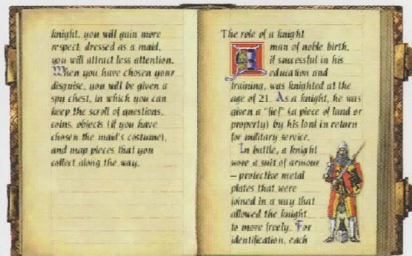 knight, you will gain more
respect, dressed as a maid,
you will attract less attention.
When you have chosen your
disguise, you will be given a
spy chest, in which you can
keep the scroll of questions,
coins, objects (if you have
chosen the maid's costume),
and map pieces that you
collect along the way.
The role of a knight
A man of noble birth,
if successful in his
education and
training, was knighted at the
age of 21. As a knight, he was
given a "fief" (a piece of land or
property) by his lord in return
for military service.
In battle, a knight
wore a suit of armour
– protective metal
plates that were
joined in a way that
allowed the knight
to move freely. For
identification, each